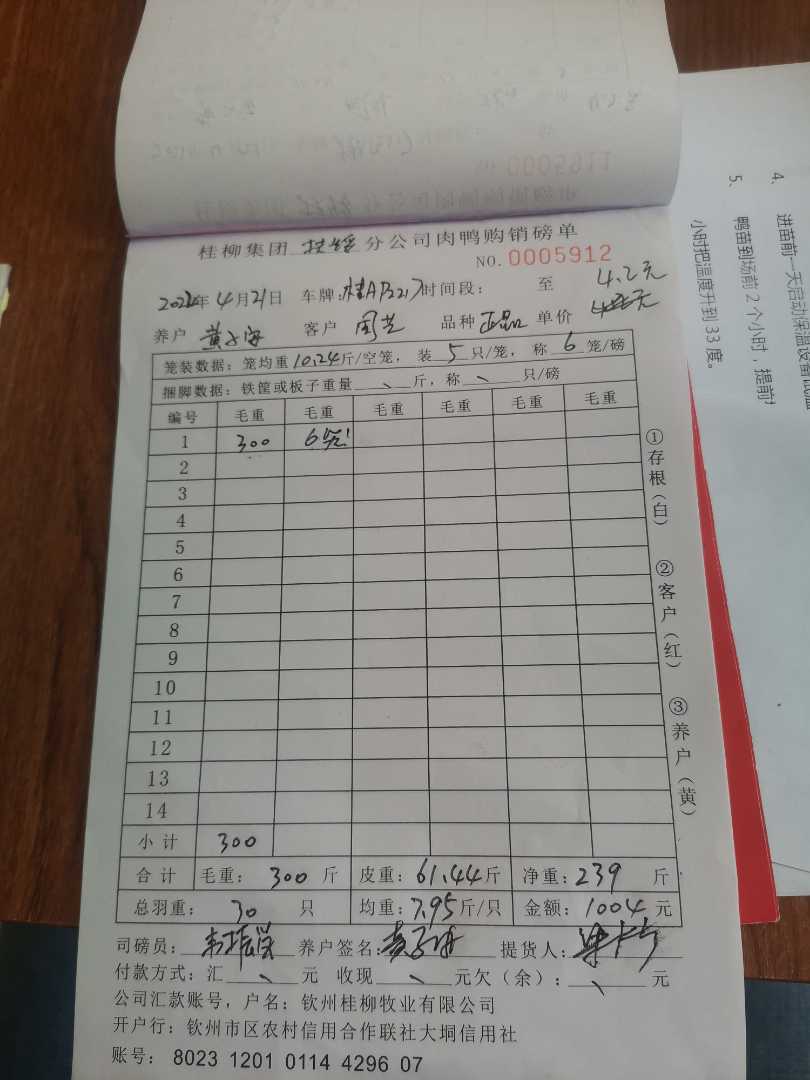 0005911
4.
进苗前一天启动保温设备
5.
鸭苗到场前 2 个小时，提前
小时把温度升到 33 度。
桂柳集团 扶绥 分公司肉鸭购销磅单
NO. 0005912
4月21日 车牌： 时间段： 至 4.2元
养户 客户 周芝 品种 正品 单价
笼装数据：笼均重10.24斤/空笼，装 5 只/笼，称 6 笼/磅
捆脚数据：铁筐或板子重量 、 斤，称 、 只/磅
编号 毛重 毛重 毛重 毛重 毛重 毛重
1 300 6笼
2
3
4
5
6
7
8
9
10
11
12
13
14
小计 300
合计 毛重：300 斤 皮重：61.44斤 净重：239 斤
总羽重：30 只 均重：7.95斤/只 金额：1004 元
司磅员：韦振 养户签名： 提货人：
付款方式：汇 、 元 收现 、 元欠（余）： 、 元
公司汇款账号，户名：钦州桂柳牧业有限公司
开户行：钦州市区农村信用合作联社大垌信用社
账号： 8023 1201 0114 4296 07
①存根（白）
②客户（红）
③养户（黄）